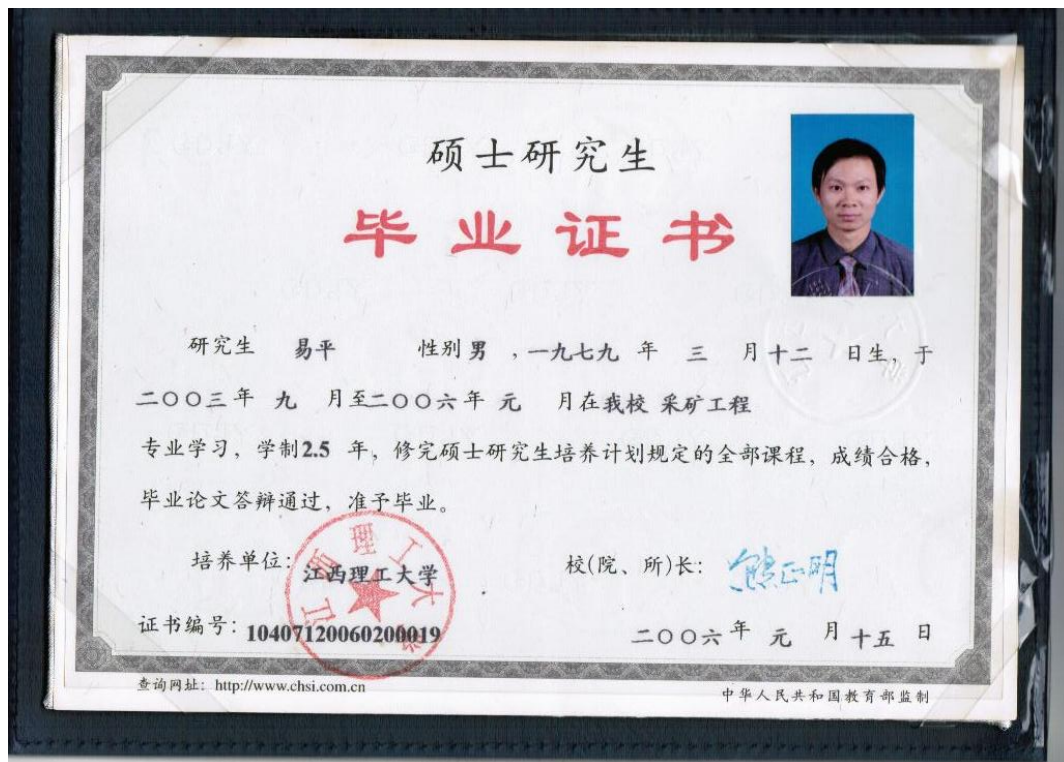 硕士研究生
毕业证书
研究生 易平 性别 男 ，一九七九 年 三 月 十二 日生，于
二〇〇三 年 九 月至 二〇〇六 年 元 月在我校 采矿工程
专业学习，学制 2.5 年，修完硕士研究生培养计划规定的全部课程，成绩合格，
毕业论文答辩通过，准予毕业。
培养单位： 江西理工大学
校(院、所)长： 熊正明
江西理工大学
证书编号： 104071200602000019
二〇〇六 年 元 月 十五 日
查询网址：http://www.chsi.com.cn
中华人民共和国教育部监制